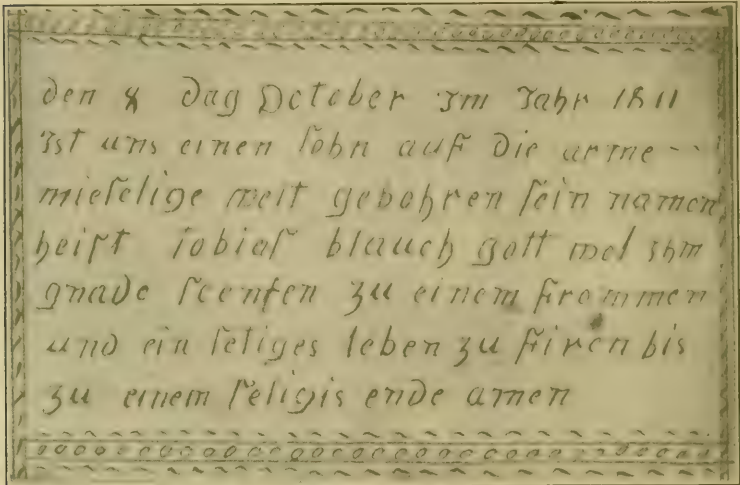 den 8 Dag October Im Jahr 1811
Ist uns einen sohn auf die arme --
mieselige welt gebohren sein namen
heist tobias blauch gott wel ihm
gnade scenken zu einem frommen
und ein seliges leben zu firen bis
zu einem seligis ende amen